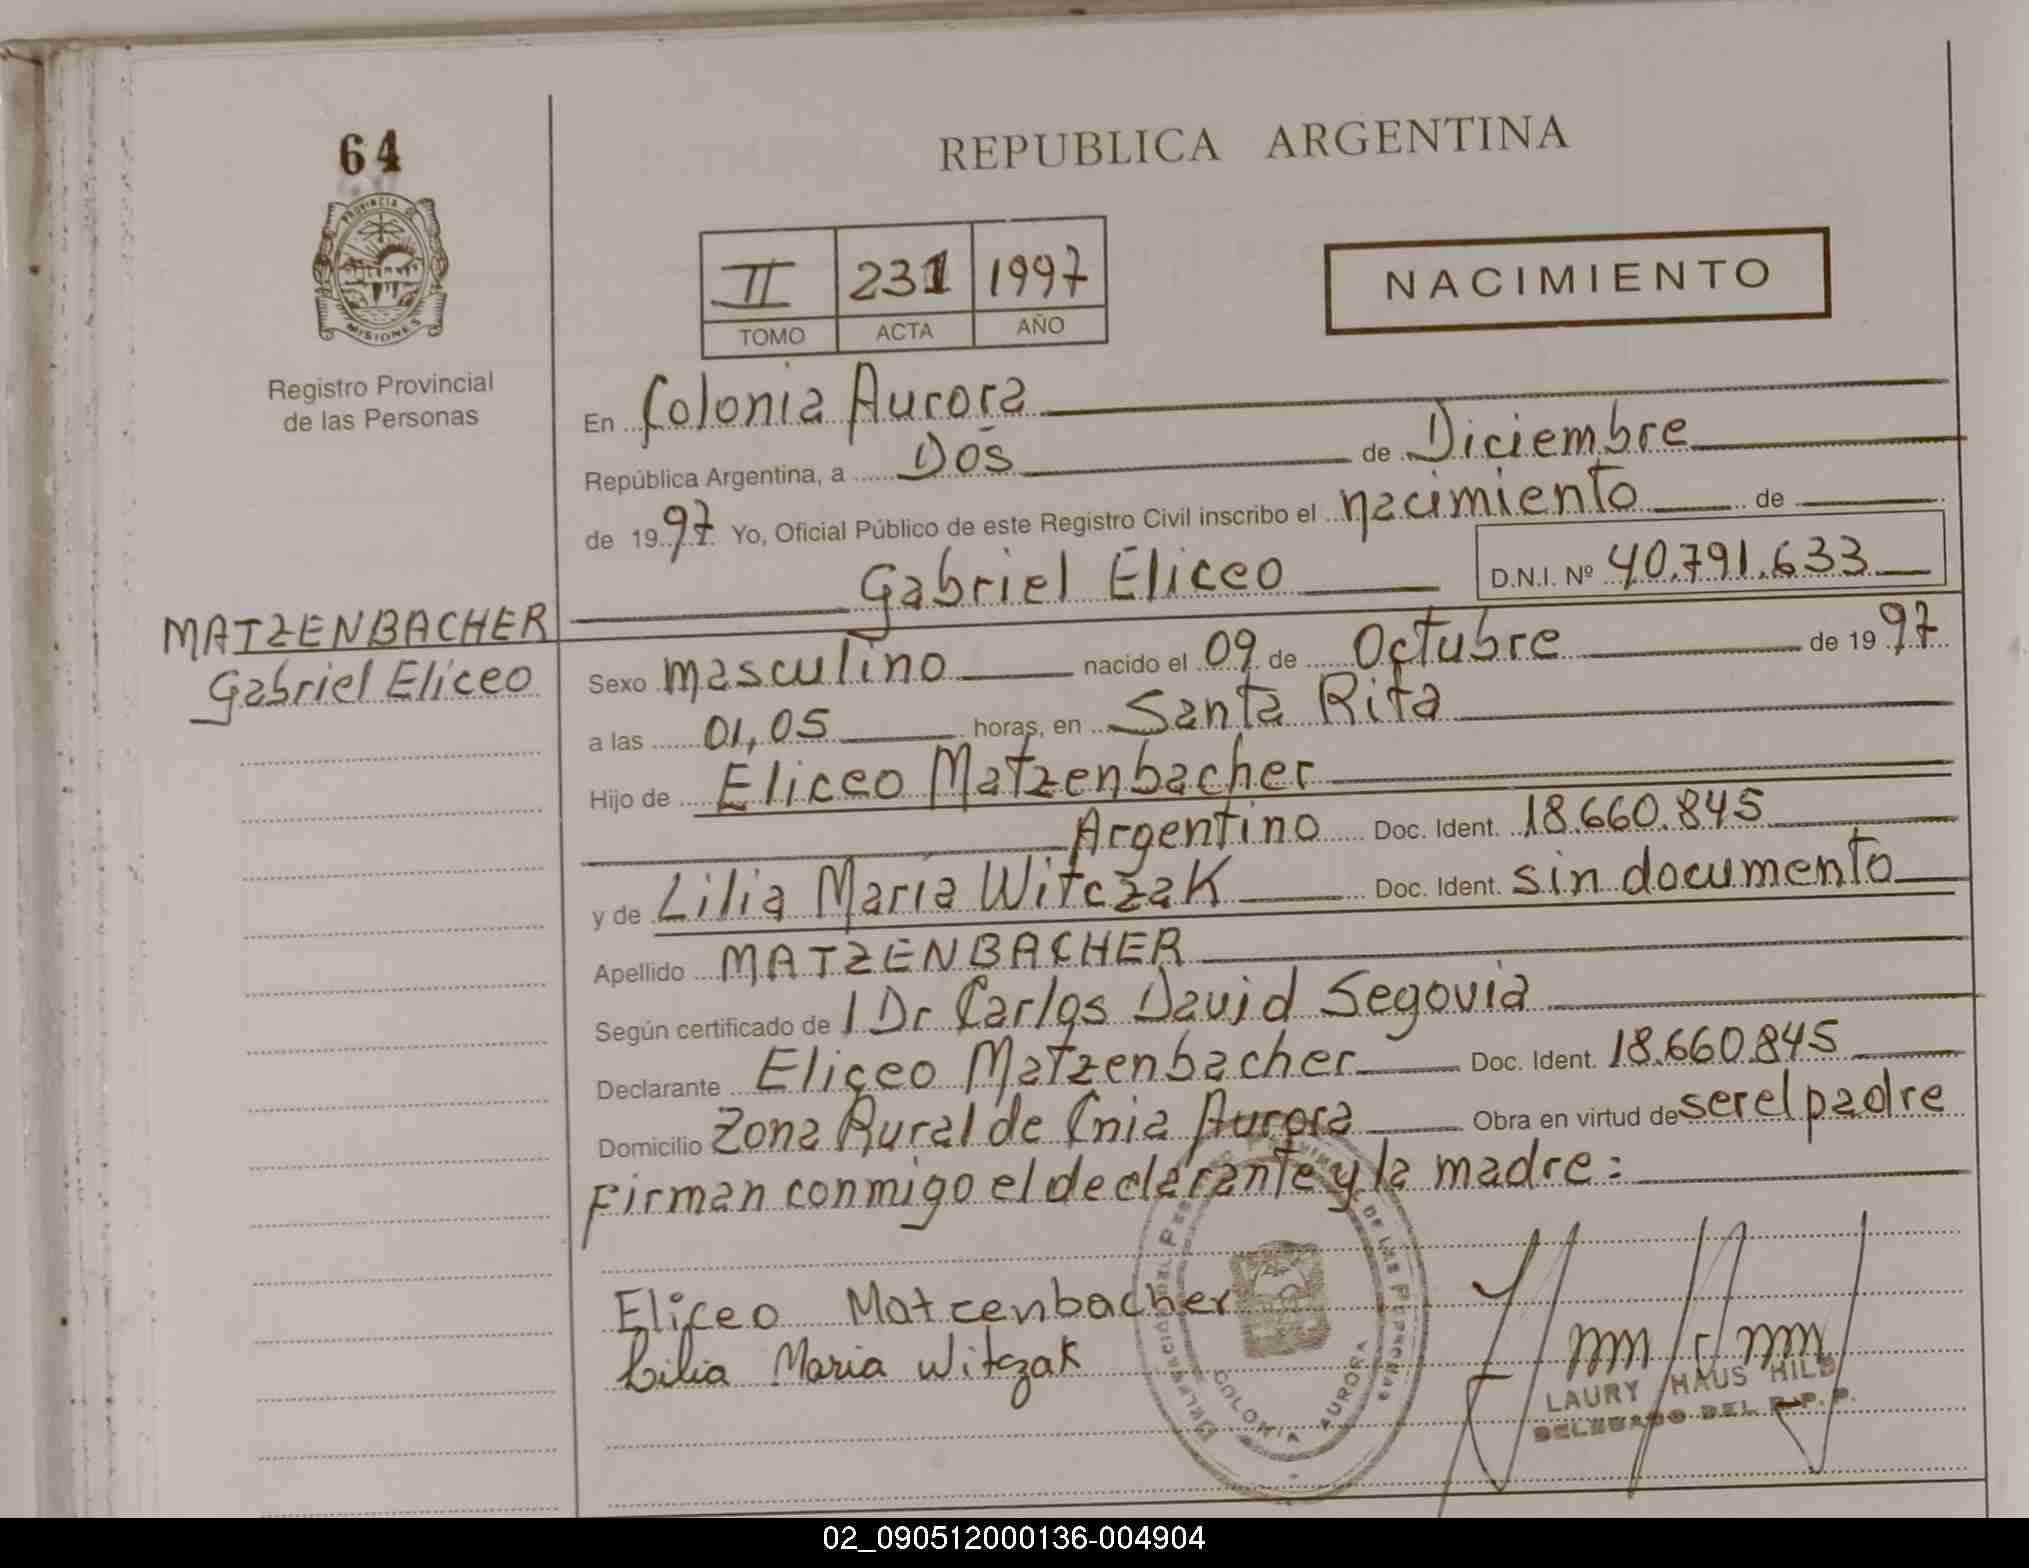 64
PROVINCIA DE
MISIONES
Registro Provincial
de las Personas
MATZENBACHER
Gabriel Eliceo
REPUBLICA ARGENTINA
II 231 1997
TOMO ACTA AÑO
NACIMIENTO
En Colonia Aurora
República Argentina, a Dos de Diciembre
de 1997 Yo, Oficial Público de este Registro Civil inscribo el nacimiento de
Gabriel Eliceo D.N.I. Nº 40.791.633
Sexo masculino nacido el 09 de Octubre de 1997
a las 01,05 horas, en Santa Rita
Hijo de Eliceo Matzenbacher
Argentino Doc. Ident. 18.660.845
y de Lilia Maria Witczak Doc. Ident. sin documento
Apellido MATZENBACHER
Según certificado de l Dr Carlos David Segovia
Declarante Eliceo Matzenbacher Doc. Ident. 18.660.845
Domicilio Zona Rural de Cnia Aurora Obra en virtud de ser el padre
Firman conmigo el declarante y la madre:
Eliceo Matzenbacher
Lilia Maria Witczak
DE LAS PERSONAS
COLONIA AURORA
LAURY HAUS HILD
DELEGADO DEL R.P.P.
02_090512000136-004904